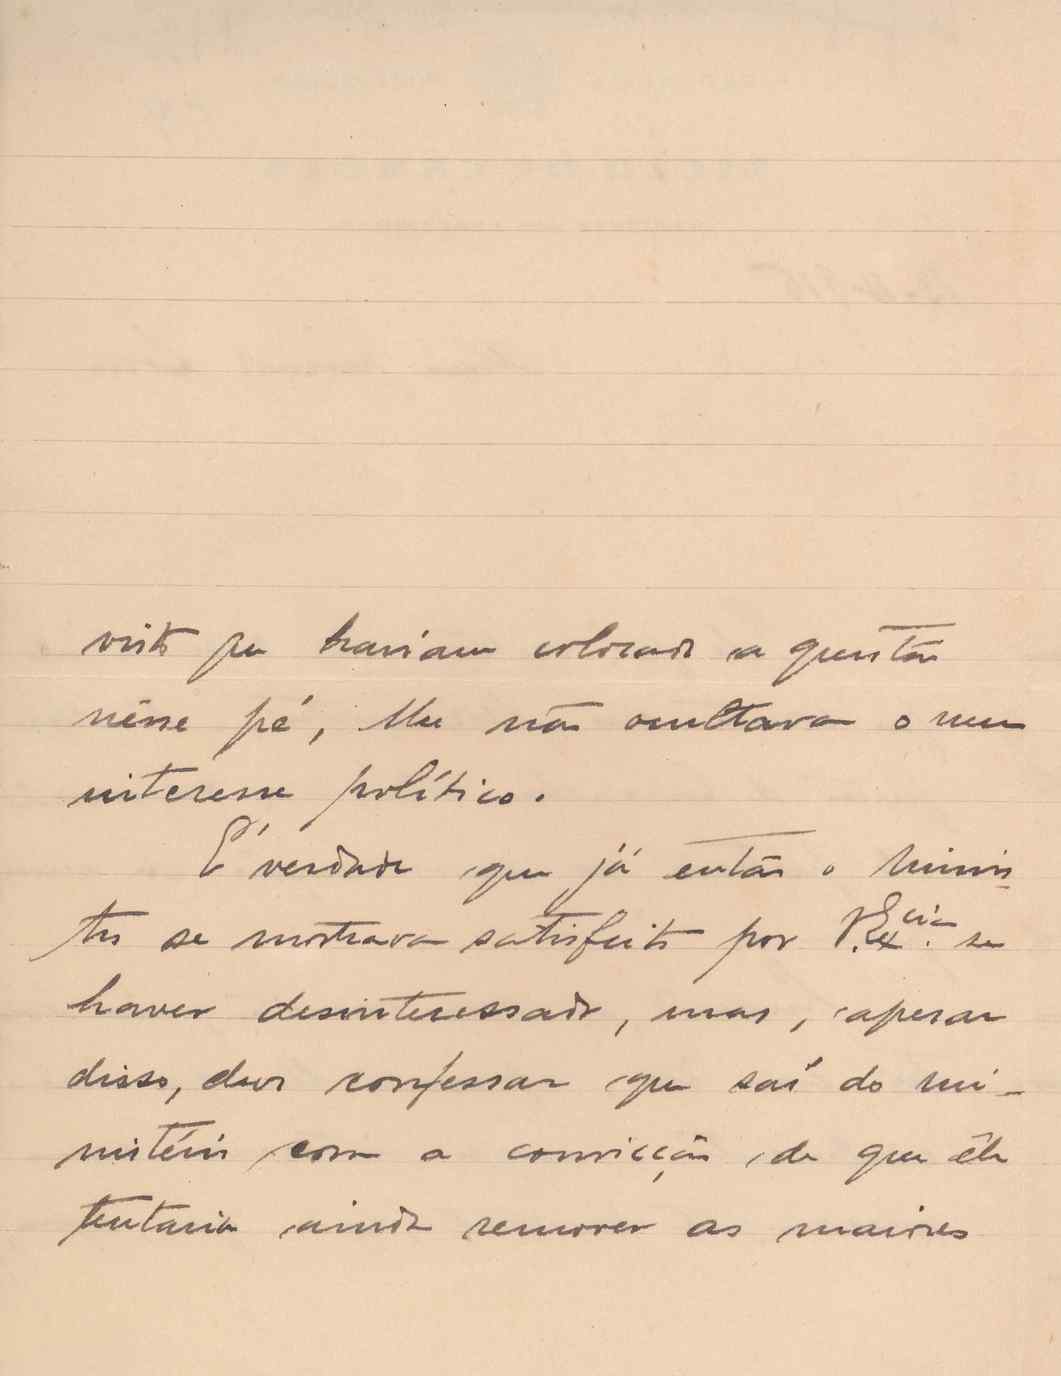 visto que haviam colocado a questão
nêsse pé, lhe não ocultava o meu
interesse político.
É verdade que já então o minis-
tro se mostrava satisfeito por V. Ex.cia se
haver desinteressado, mas, apesar
disso, devo confessar que saí do mi-
nistério com a convicção de que êle
tentaria ainda remover as maiores